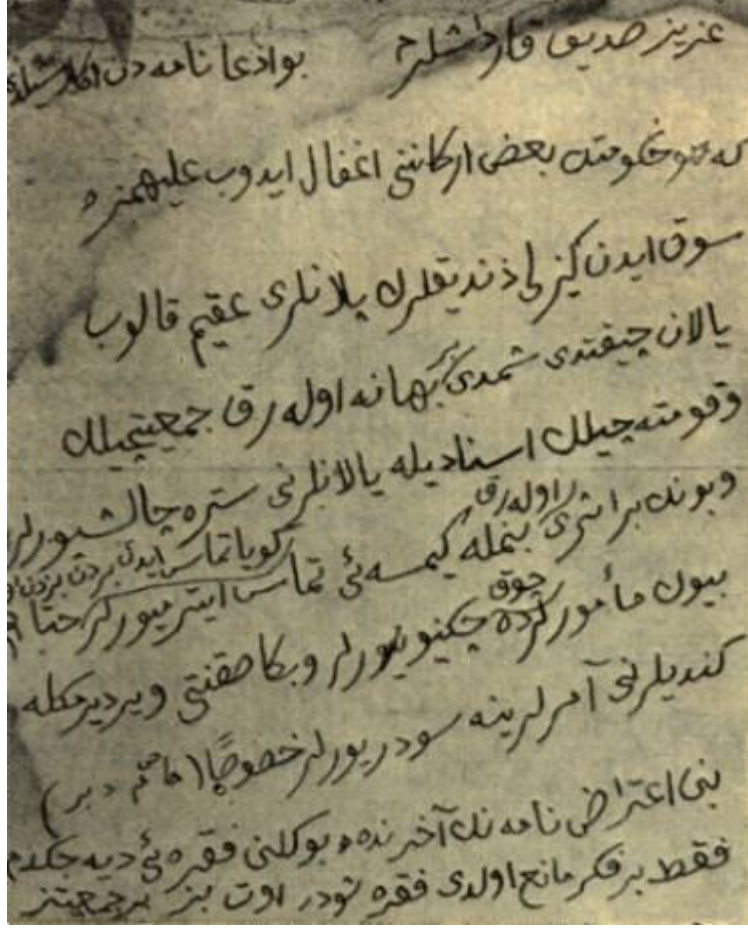 عزیز صدیق قارداشلرم بو ادعا نامه دن اڭلاشیلدی
که حکومتڭ بعض ارکاننی اغفال ایدوب علیهمزه
سوق ایدن کیزلی زندیقلرڭ پلانلری عقیم قالوب
یالان چیقدی شمدی بر بهانه اوله رق جمعیتچیلك
وقومیته جیلك اسنادیله یالانلرنی ستره چالیشیورلر
وبونڭ بر اثری اوله رق بنمله کیمسه ئی تماس ایتدیرمیورلر
کویا تماس ایدن بردن بزدن
حتّا بیوك مأمورلرده چوق چکینیورلر وبڭا صقنتی ویردیرمکله
کندیلرنی آمرلرینه سودیریورلر خصوصًا
بن اعتراض نامه نك آخرنده بو کلن فقره ئی دیه جکدم
فقط بر فکر مانع اولدی فقره شودر اوت بز بر جمعیتز